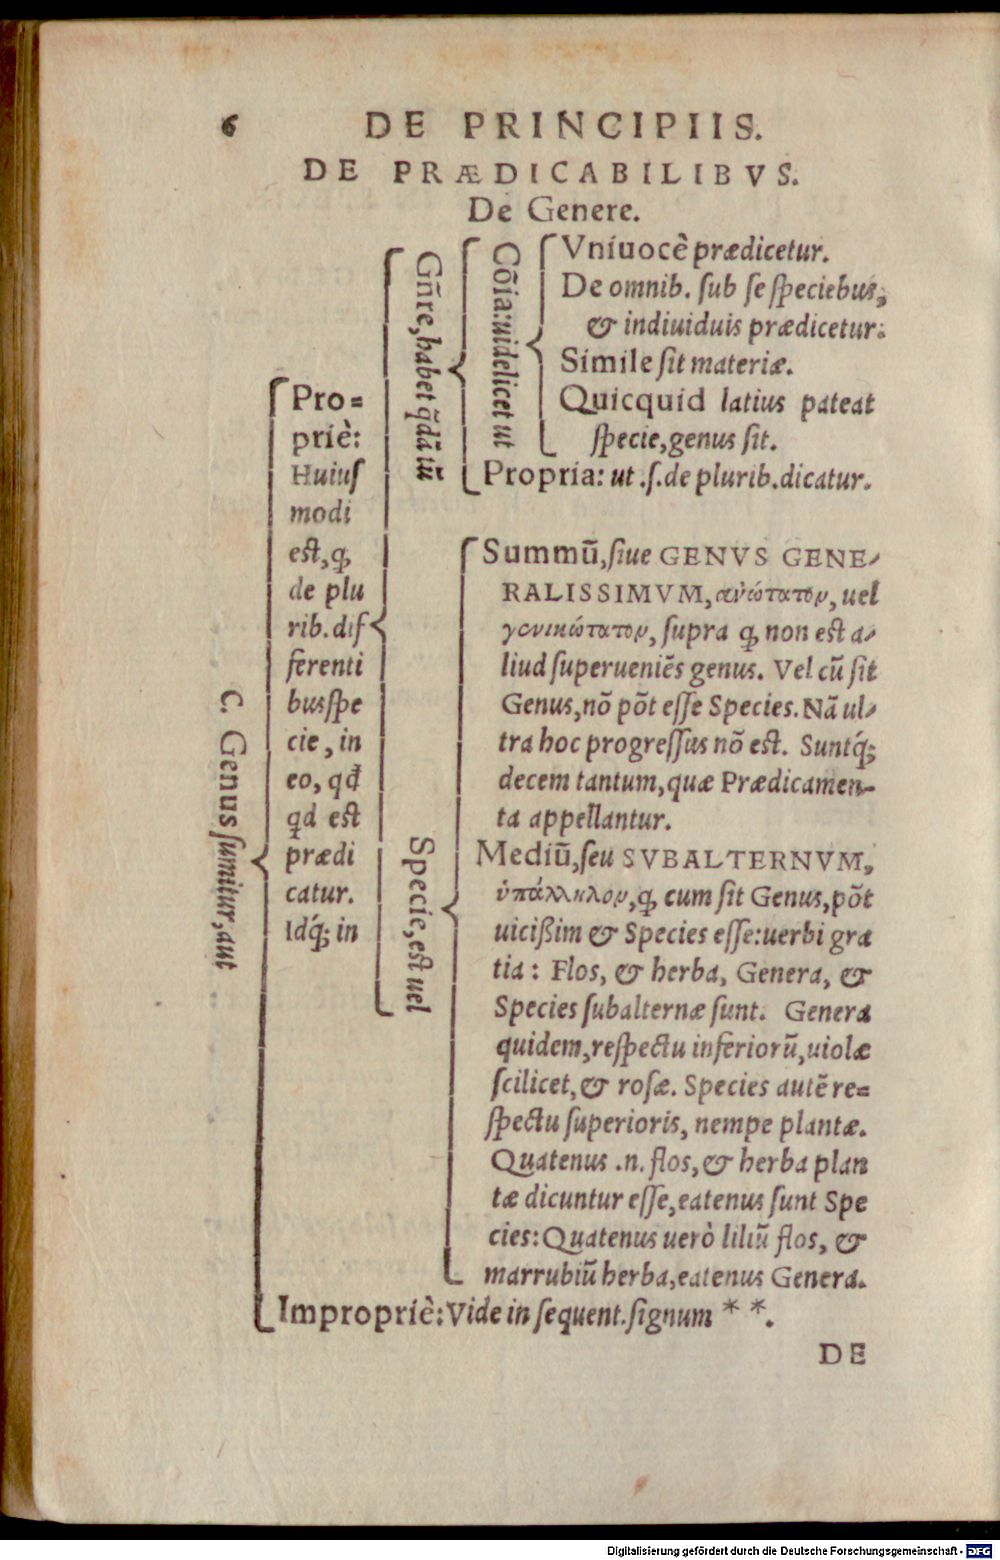 6 DE PRINCIPIIS.
DE PRÆDICABILIBVS.
De Genere.
C. Genus ſumitur, aut
Pro=
priè:
Huiuſ
modi
est, ꝙ
de plu
rib. dif
ferenti
bus ſpe
cie, in
eo, qđ
qd est
prædi
catur.
Idq́; in
Gn̄re, habet q̄dā iū
Cōia: uidelicet ut
Vniuocè prædicetur.
De omnib. ſub ſe ſpeciebus,
& indiuiduis prædicetur:
Simile ſit materiæ.
Quicquid latius pateat
ſpecie, genus ſit.
Propria: ut .ſ. de plurib. dicatur.
Specie, est uel
Summū, ſiue GENVS GENE-
RALISSIMVM, ἀνώτατον, uel
γενικώτατον, ſupra ꝙ non est a-
liud ſuperueniēs genus. Vel cū ſit
Genus, nō pōt eſſe Species. Nā ul-
tra hoc progreſſus nō est. Suntq́;
decem tantum, quæ Prædicamen-
ta appellantur.
Mediū, ſeu SVBALTERNVM,
ὑπάλληλον, ꝙ cum ſit Genus, pōt
uicißim & Species eſſe: uerbi gra
tia: Flos, & herba, Genera, &
Species ſubalternæ ſunt. Genera
quidem, reſpectu inferiorū, uiolæ
ſcilicet, & roſæ. Species autē re=
ſpectu ſuperioris, nempe plantæ.
Quatenus .n. flos, & herba plan
tæ dicuntur eſſe, eatenus ſunt Spe
cies: Quatenus uerò liliū flos, &
marrubiū herba, eatenus Genera.
Impropriè: Vide in ſequent. ſignum * *.
DE
Digitalisierung gefördert durch die Deutsche Forschungsgemeinschaft - DFG